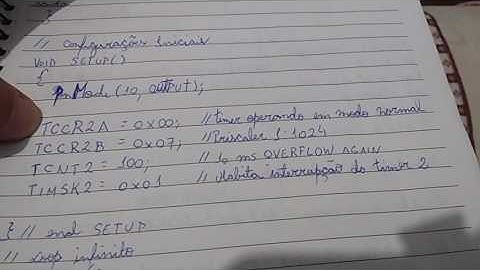 // Configurações Iniciais
VOID SETUP()
{
pinMode (10, OUTPUT);
TCCR2A = 0x00; //timer operando em modo normal
TCCR2B = 0x07; //Prescaler 1:1024
TCNT2 = 100; // 10 ms OVERFLOW AGAIN
TIMSK2 = 0x01 // Habita interrupção do timer 2
} // end SETUP
// Loop infinito